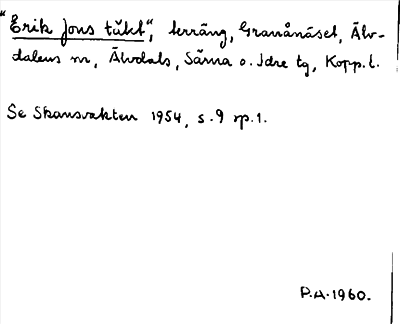 "Erik Jons täkt", terräng, Granånäset, Älv-
dalens m, Älvdals, Särna o. Idre tg, Kopp. l.
Se Skansvakten 1954, s. 9 sp. 1.
P.A. 1960.